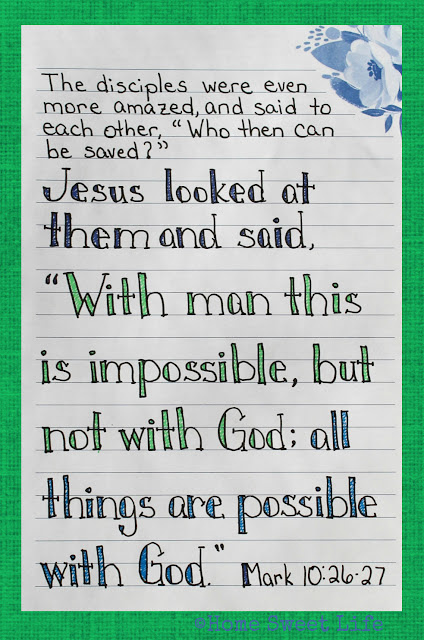 The disciples were even
more amazed, and said to
each other, “Who then can
be saved?”
Jesus looked at
them and said,
“With man this
is impossible, but
not with God; all
things are possible
with God.” Mark 10:26-27
©Home Sweet Life